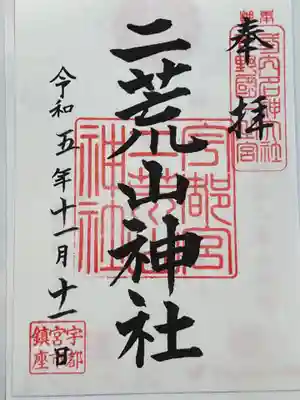 奉拝
二荒山神社
宇都宮
二荒山
神社
令和五年十一月十一日
宇都
宮市
鎮座